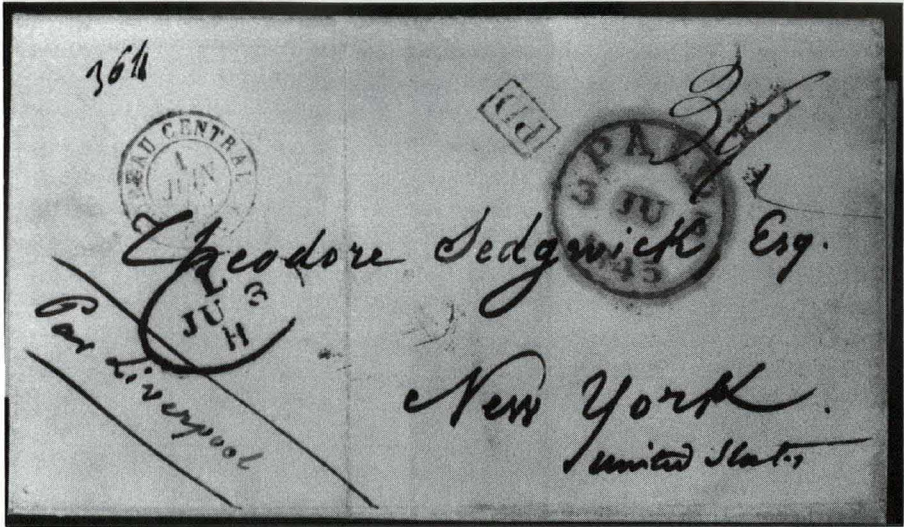 364
BUREAU CENTRAL
1
JUIN
PD
PAID
3 JU 3
1845
Theodore Sedgwick Esq.
L 3
JU
H
Par Liverpool
New York.
United States